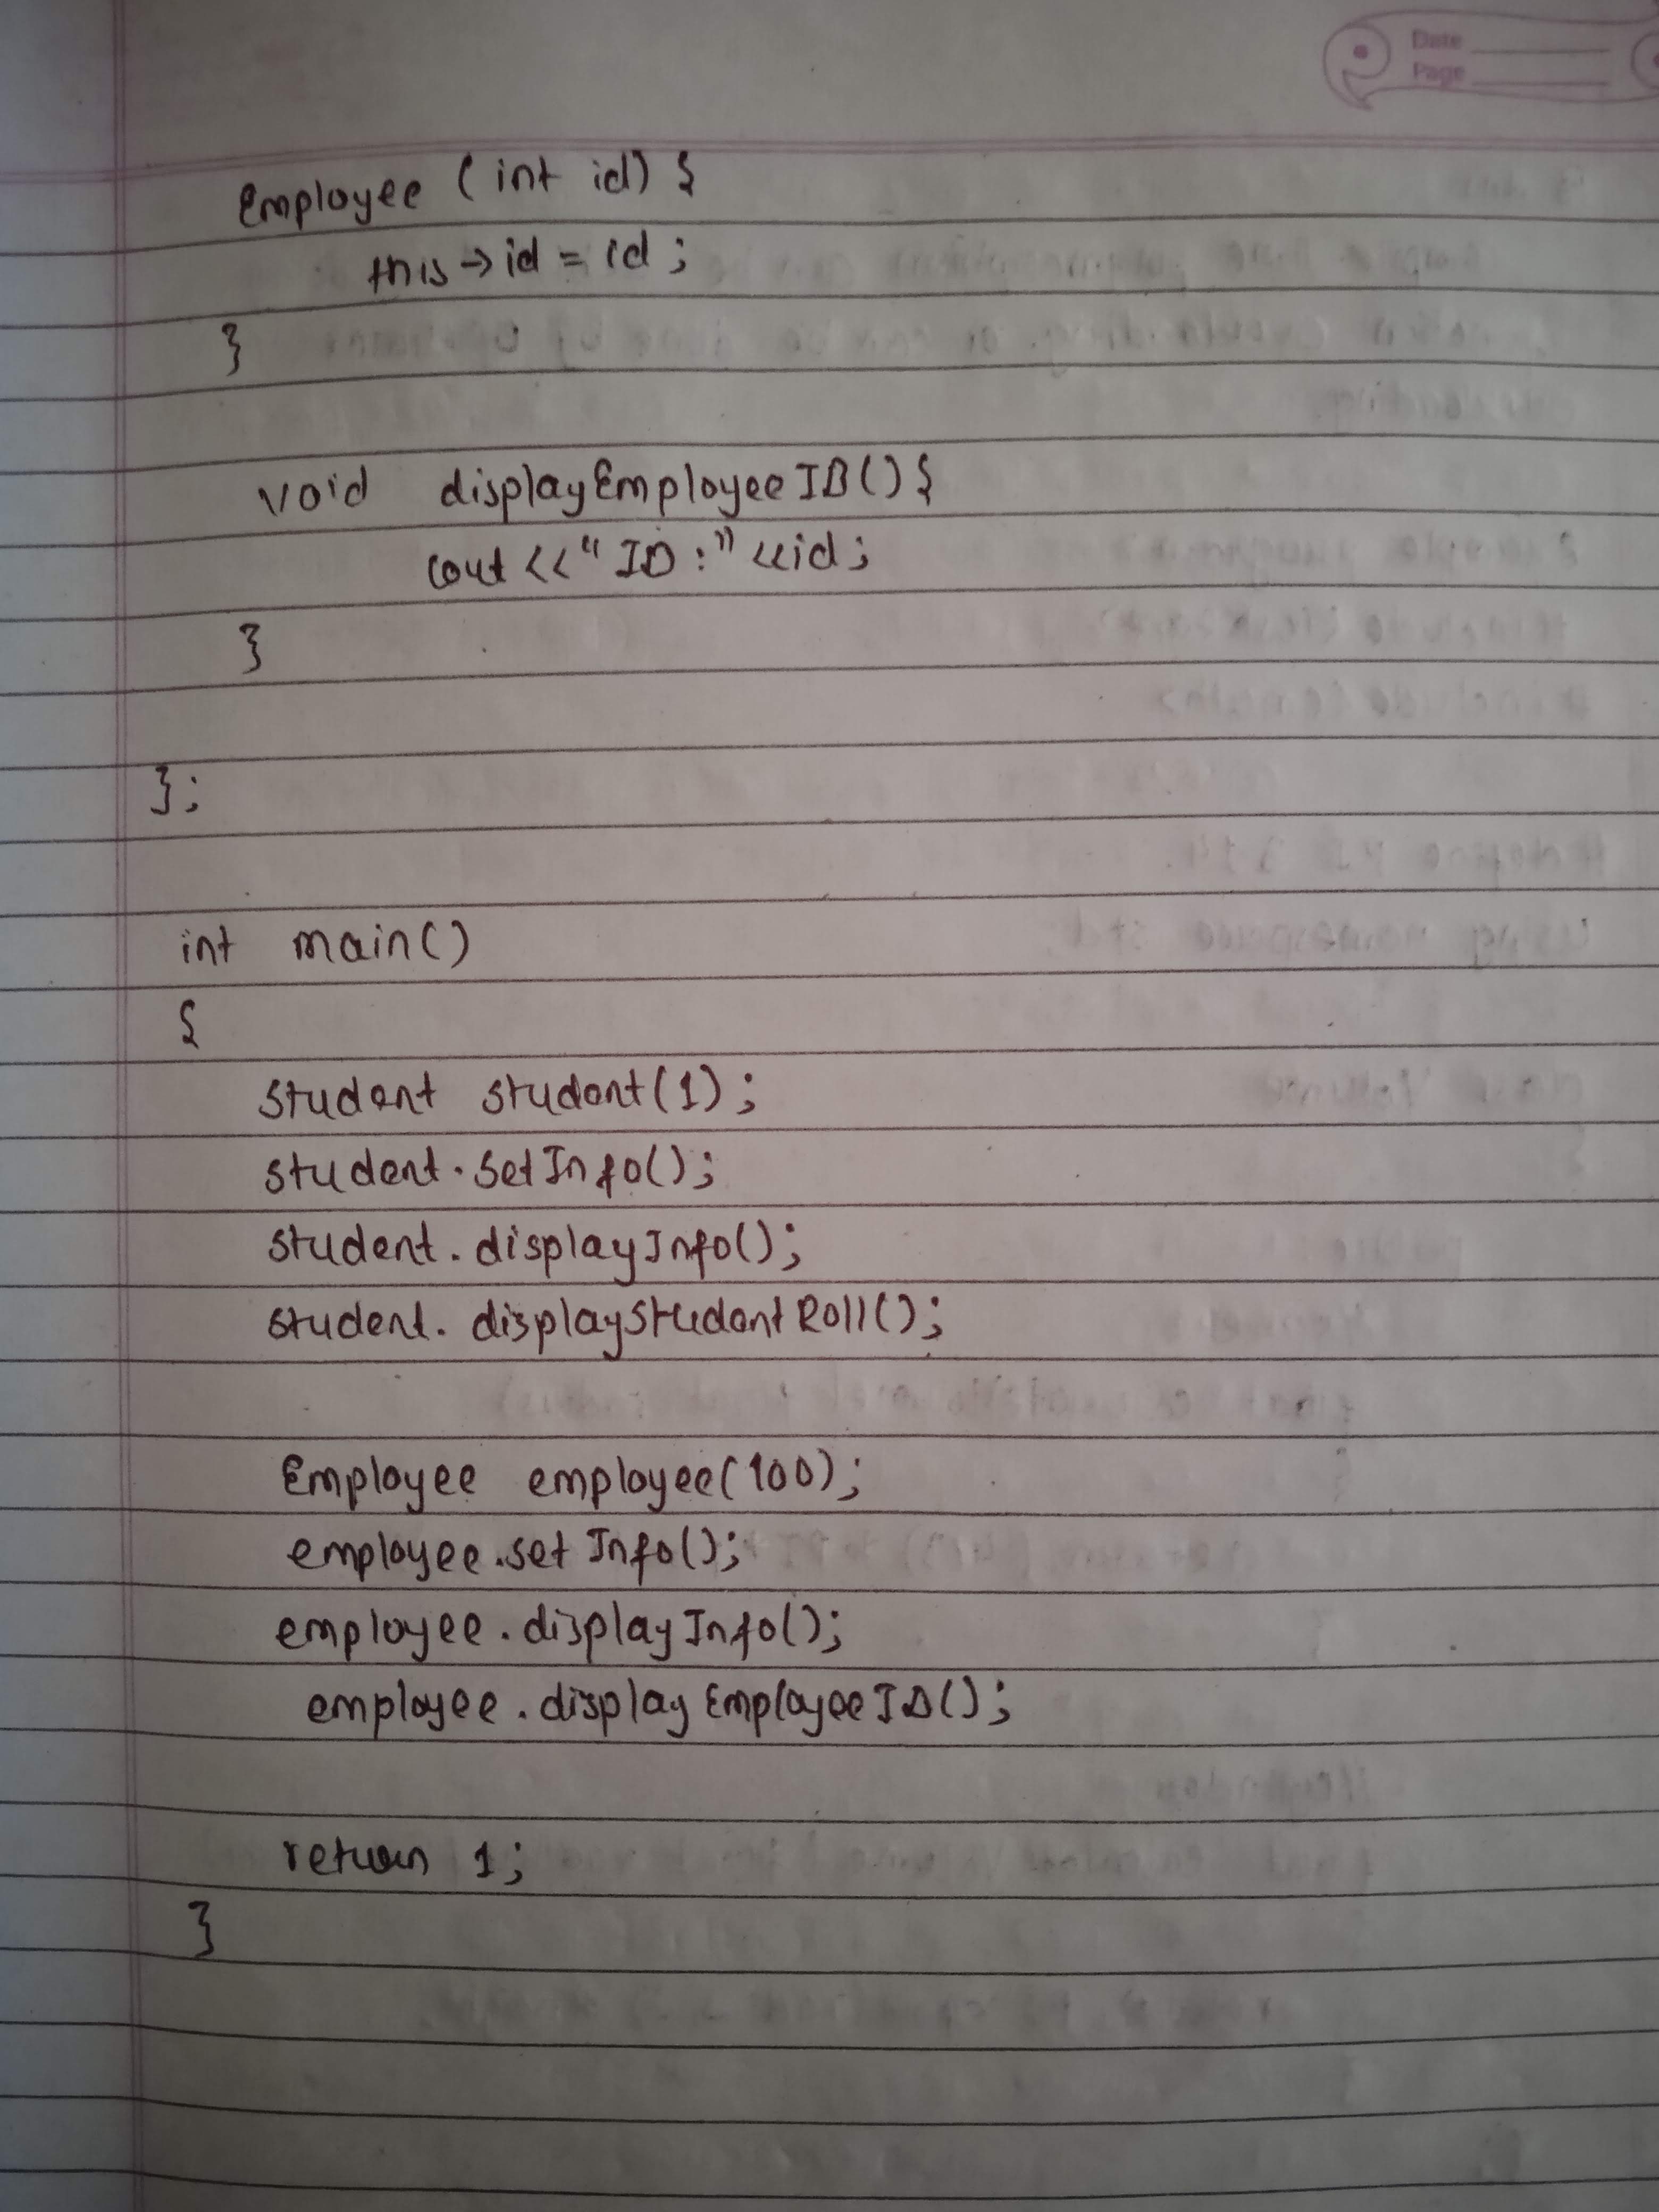 Date
Page
Employee (int id) {
this → id = id ;
}
void displayEmployeeID() {
cout << " ID : " << id ;
}
} ;
int main()
{
Student student(1) ;
student. setInfo() ;
student. displayInfo() ;
student. displayStudentRoll() ;
Employee employee(100) ;
employee. set Info() ;
employee. displayInfo() ;
employee. displayEmployeeID() ;
return 1 ;
}